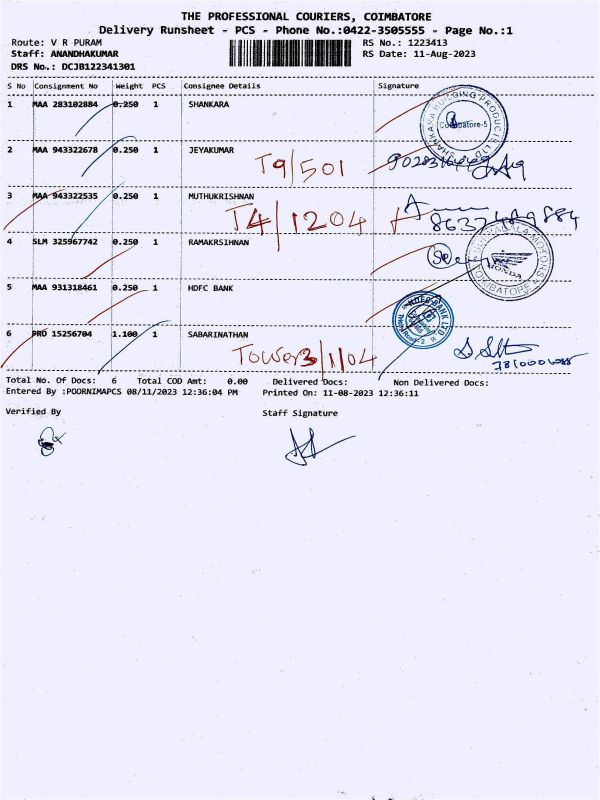 THE PROFESSIONAL COURIERS, COIMBATORE
Delivery Runsheet - PCS - Phone No.:0422-3505555 - Page No.:1
Route: V R PURAM RS No.: 1223413
Staff: ANANDHAKUMAR RS Date: 11-Aug-2023
DRS No.: DCJB122341301
S No Consignment No Weight PCS Consignee Details Signature
1 MAA 283102884 0.250 1 SHANKARA
Coimbatore-5
2 MAA 943322678 0.250 1 JEYAKUMAR
T9/501
3 MAA 943322535 0.250 1 MUTHUKRISHNAN
T4/1204
4 SLM 325967742 0.250 1 RAMAKRSIHNAN
HONDA
COIMBATORE
5 MAA 931318461 0.250 1 HDFC BANK
HDFC BANK LTD
6 PRD 15256704 1.100 1 SABARINATHAN
Tower3/1/04
Total No. Of Docs: 6 Total COD Amt: 0.00 Delivered Docs: Non Delivered Docs:
Entered By :POORNIMAPCS 08/11/2023 12:36:04 PM Printed On: 11-08-2023 12:36:11
Verified By Staff Signature